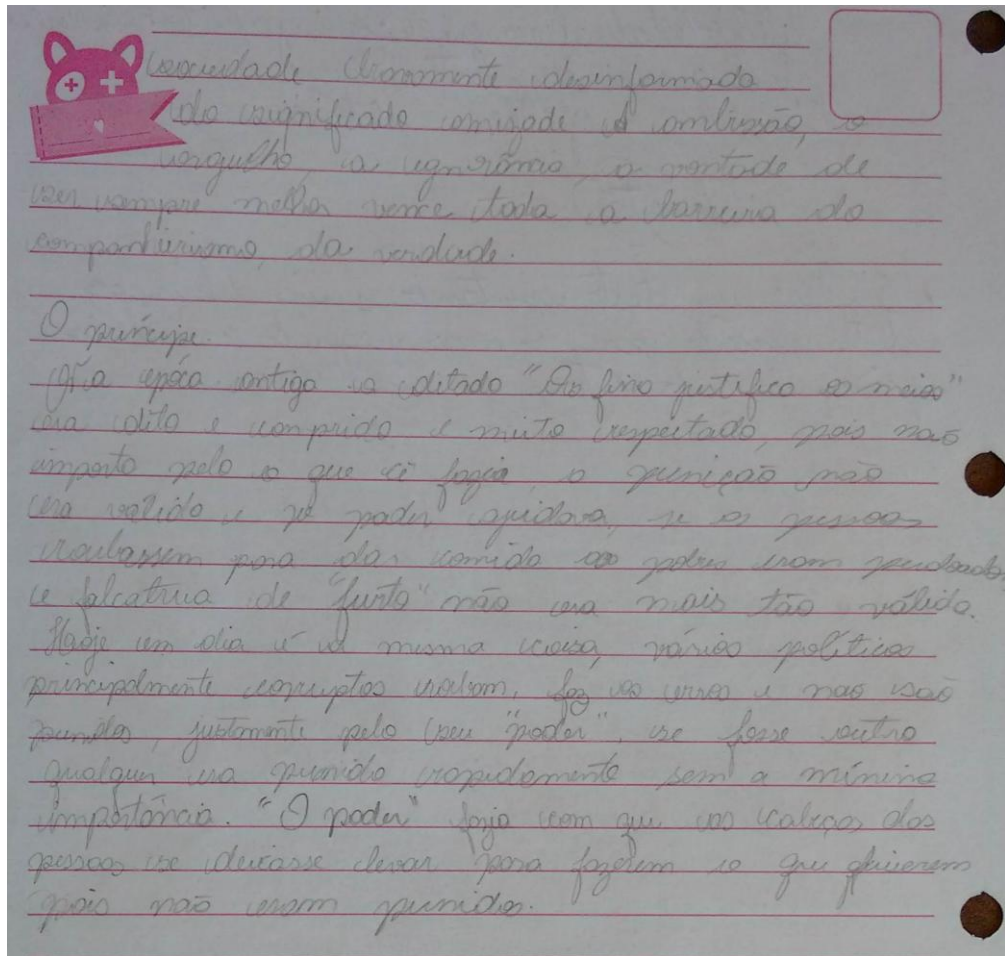 sociedade claramente desinformada
do significado amizade a ambissão, o
orgulho, a ignorância, a vontade de
ser sempre melhor vence toda a barreira do
companheirismo, da verdade.
O príncipe.
Na época antiga o ditado "Os fins justifica os meios"
era dito e comprido e muito respeitado, pois não
importa pelo o que cê fazia, a punição não
era valida e se poder ajudava, se as pessoas
roubassem para dar comida aos pobres eram perdoado
e falcatrua de "furto" não era mais tão válida.
Hoje em dia é a mesma coisa, vários políticos
principalmente corruptos roubam, faz os erros e nao são
punidos, justamente pelo seu "poder", se fosse outro
qualquer era punido rapidamente sem a mínina
importância. "O poder" fazia com que as cabeças das
pessoas se deixasse levar para fazerem o que quiserem
pois não eram punidos.